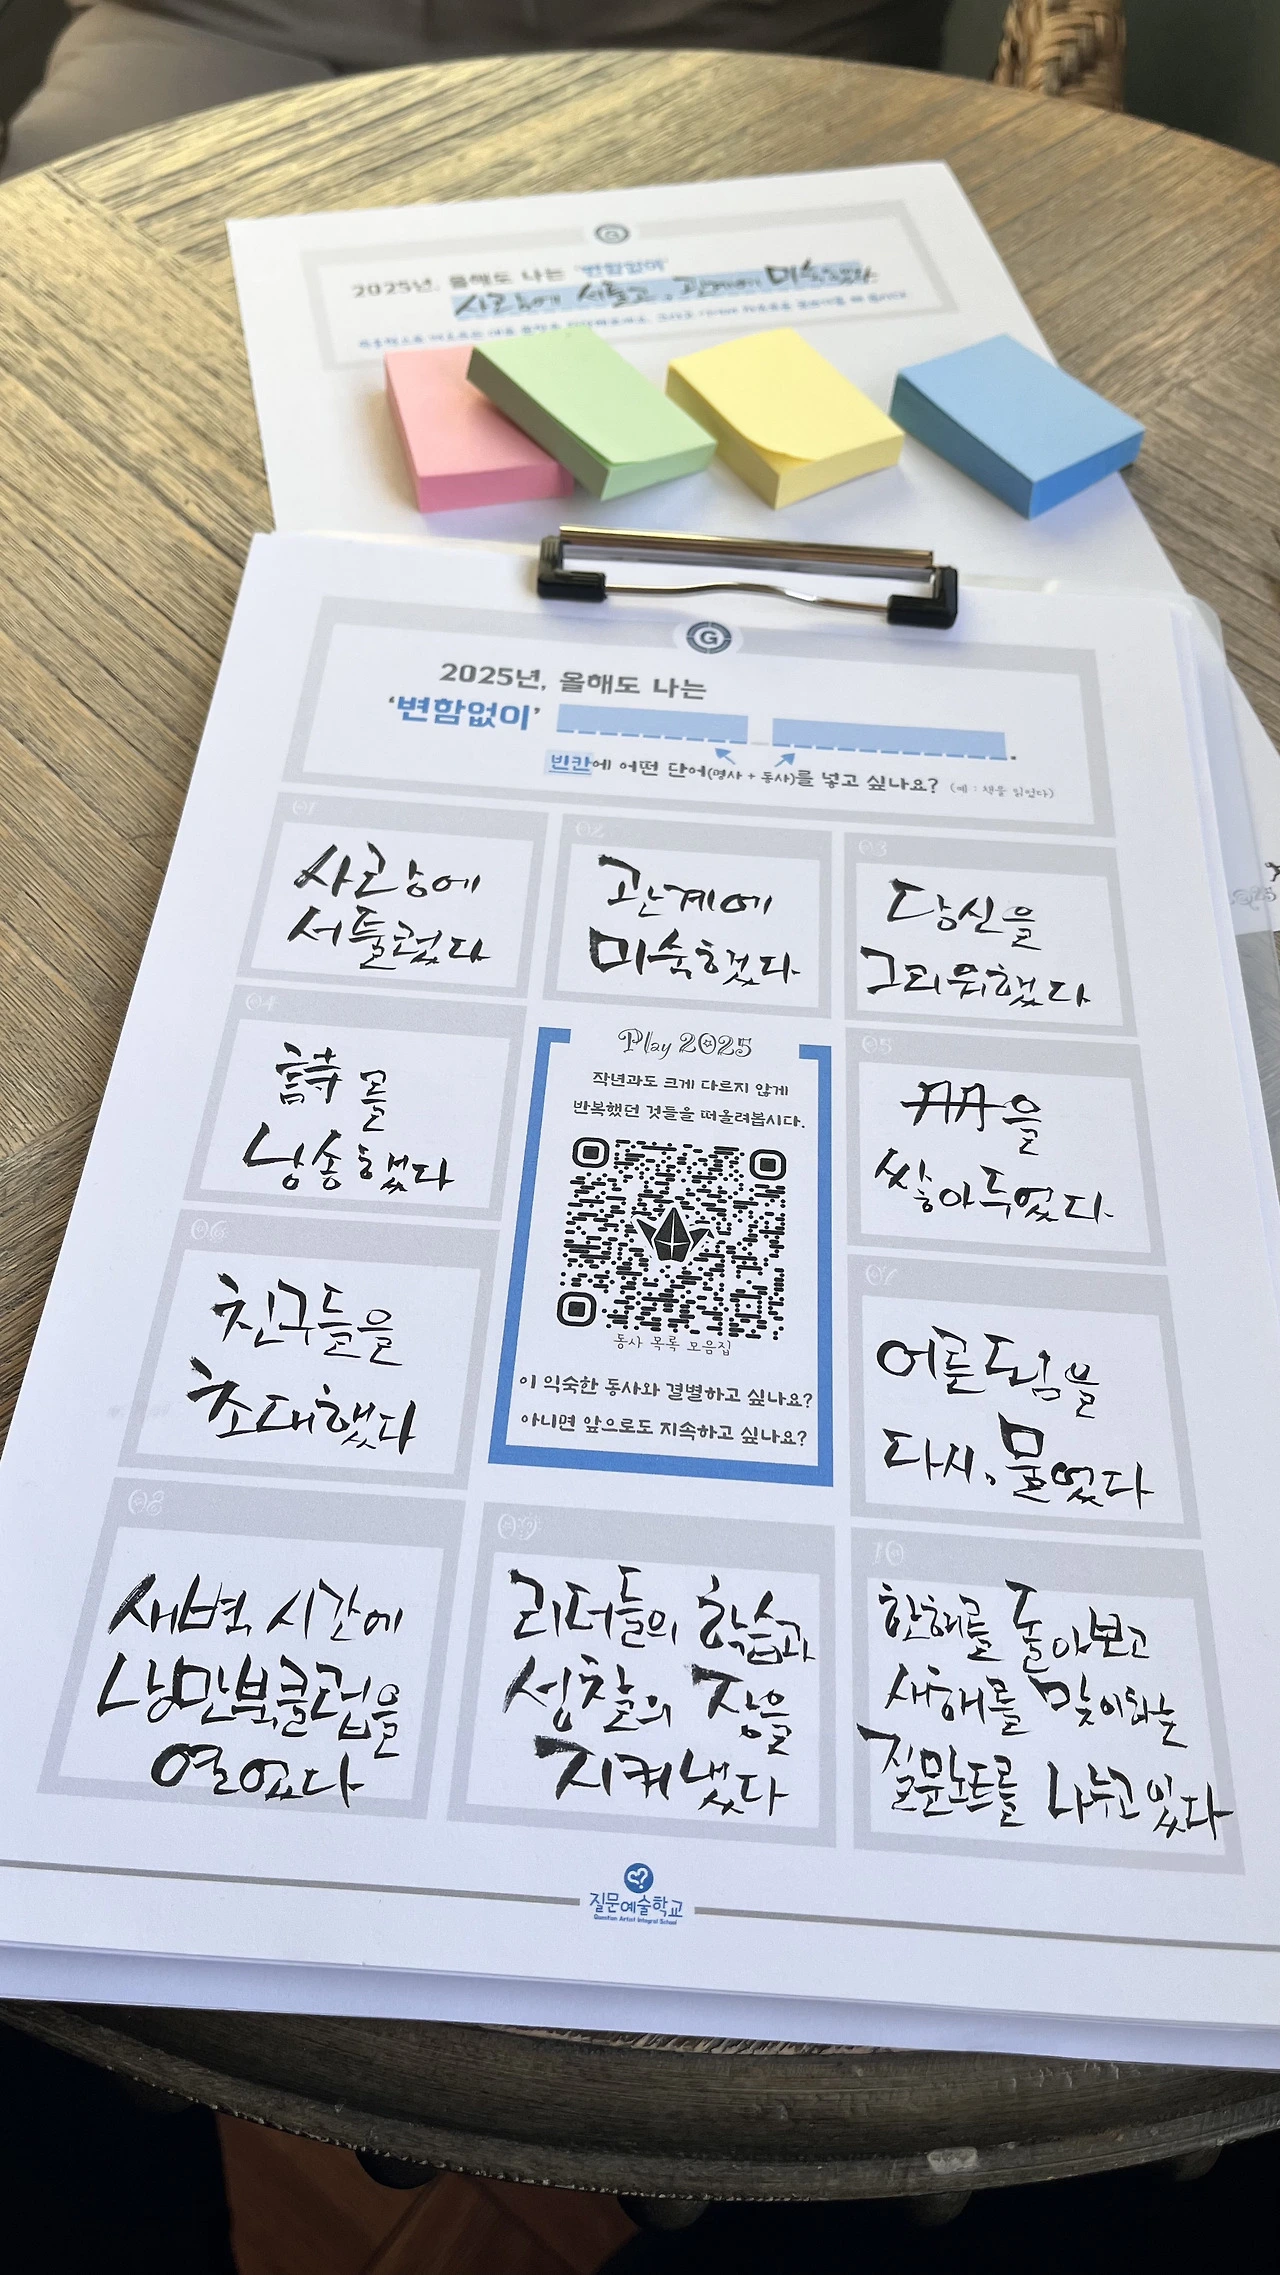 2025년, 올해도 나는 '변함없이'
사랑에 서툴고, 관계에
G
2025년, 올해도 나는
'변함없이'
빈칸에 어떤 단어(명사 + 동사)를 넣고 싶나요? (예 : 책을 읽었다)
01
사랑에
서툴렀다
02
관계에
미숙했다
03
당신을
그리워했다
04
詩를
낭송했다
Play 2025
작년과도 크게 다르지 않게
반복했던 것들을 떠올려봅시다.
동사 목록 모음집
이 익숙한 동사와 결별하고 싶나요?
아니면 앞으로도 지속하고 싶나요?
05
을
쌓아두었다
06
친구들을
초대했다
07
어른도님을
다시, 물었다
08
새벽 시간에
낭만북클럽을
열었다
09
리더들의 학습과
성찰의 장을
지켜냈다
10
한해를 돌아보고
새해를 맞이하는
질문노트를 나누고 있다
질문예술학교
Question Artist Integral School